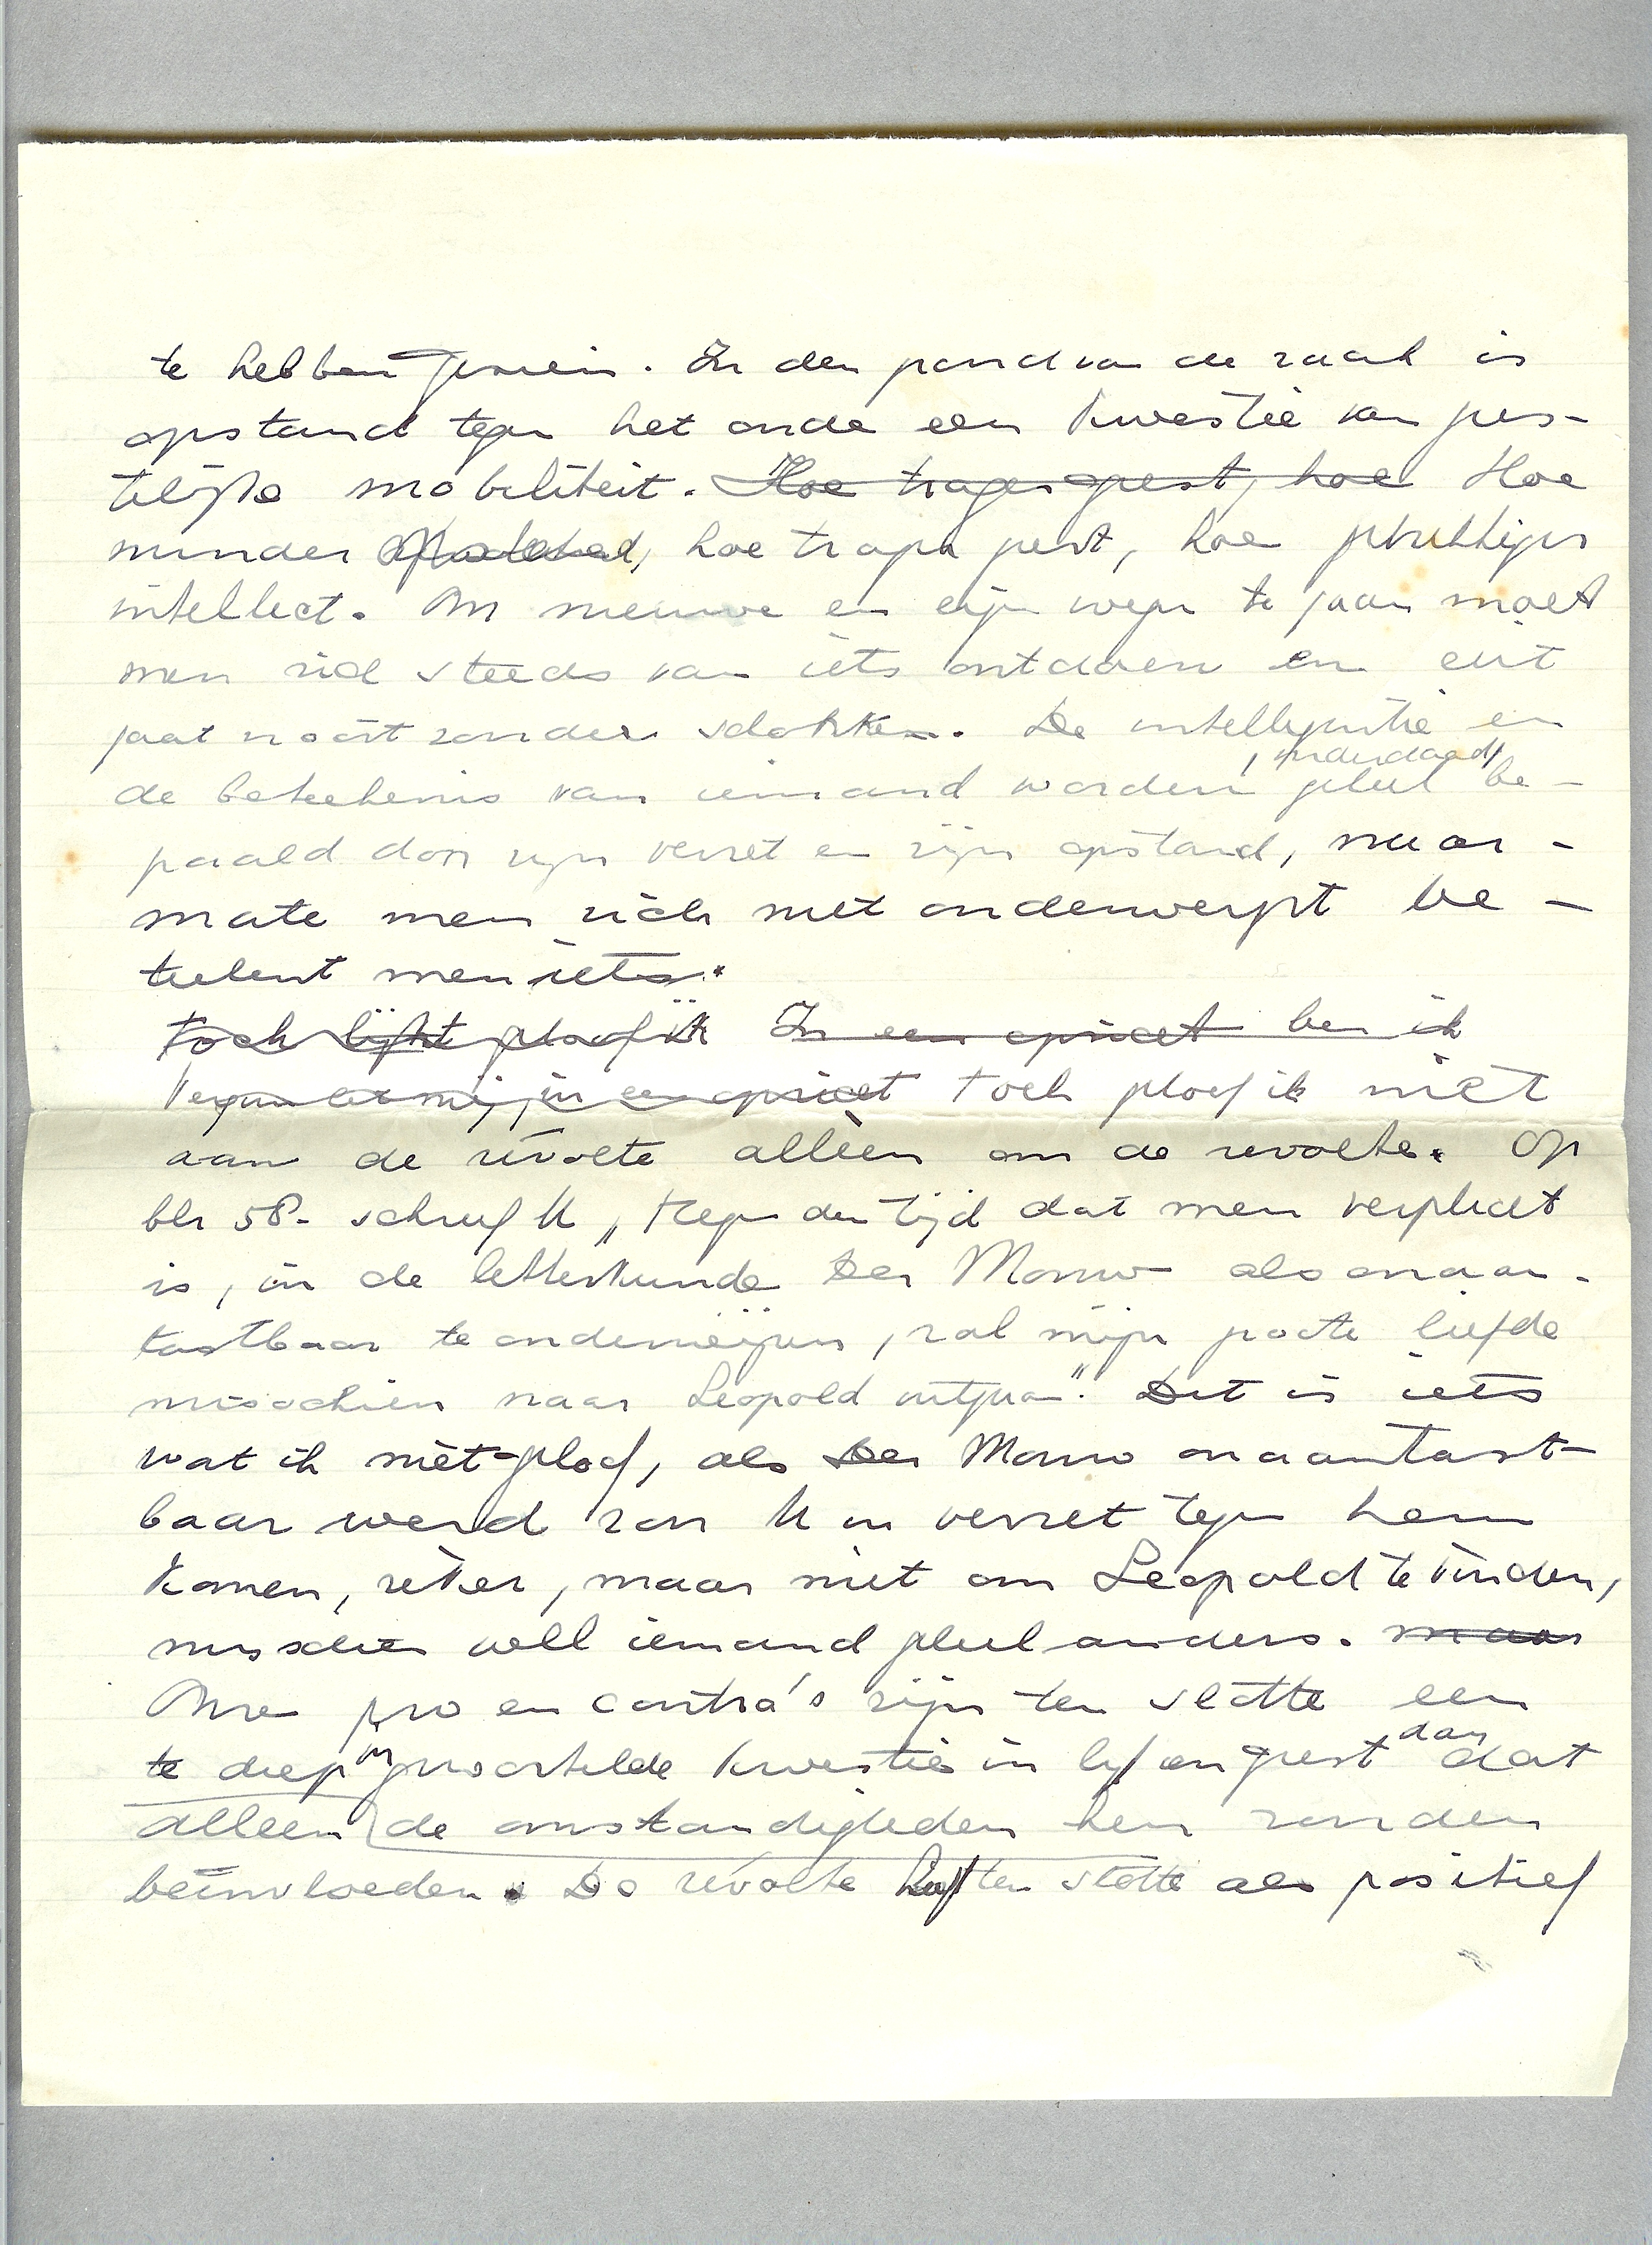 te hebben gezien. In den grond van de zaak is
opstand tegen het oude een kwestie van gees-
telijke mobiliteit. Hoe trager geest, hoe Hoe
minder opstand, hoe trager geest, hoe gelukkiger
intellect. Om nieuwe en eigen wegen te gaan moet
men zich steeds van iets ontdoen en dit
gaat nooit zonder schokken. De intelligentie en
de beteekenis van iemand worden, inderdaad, geheel be-
paald door zijn verzet en zijn opstand, naar-
mate men zich niet onderwerpt be-
teekent men iets.
Toch lijkt geloof ik In een opzicht ben ik
in een opzicht Toch geloof ik niet
aan de révolte alléén om de revolte. Op
blz 58. schreef U „Tegen den tijd dat men verplicht
is, in de letterkunde Der Mouw als onaan-
tastbaar te onderwijzen, zal mijn groote liefde
misschien naar Leopold uitgaan". Dit is iets
wat ik niet geloof, als Der Mouw onaantast-
baar werd zou U in verzet tegen hem
komen, zéker, maar niet om Leopold te vinden,
misschien well iemand geheel anders. maar
Onze pro en contra's zijn ten slotte een
te diep in gewortelde kwestie in lijf en geest dan dat
alleen de omstandigheden hen zouden
beïnvloeden. De révolte heeft ten slotte als positief